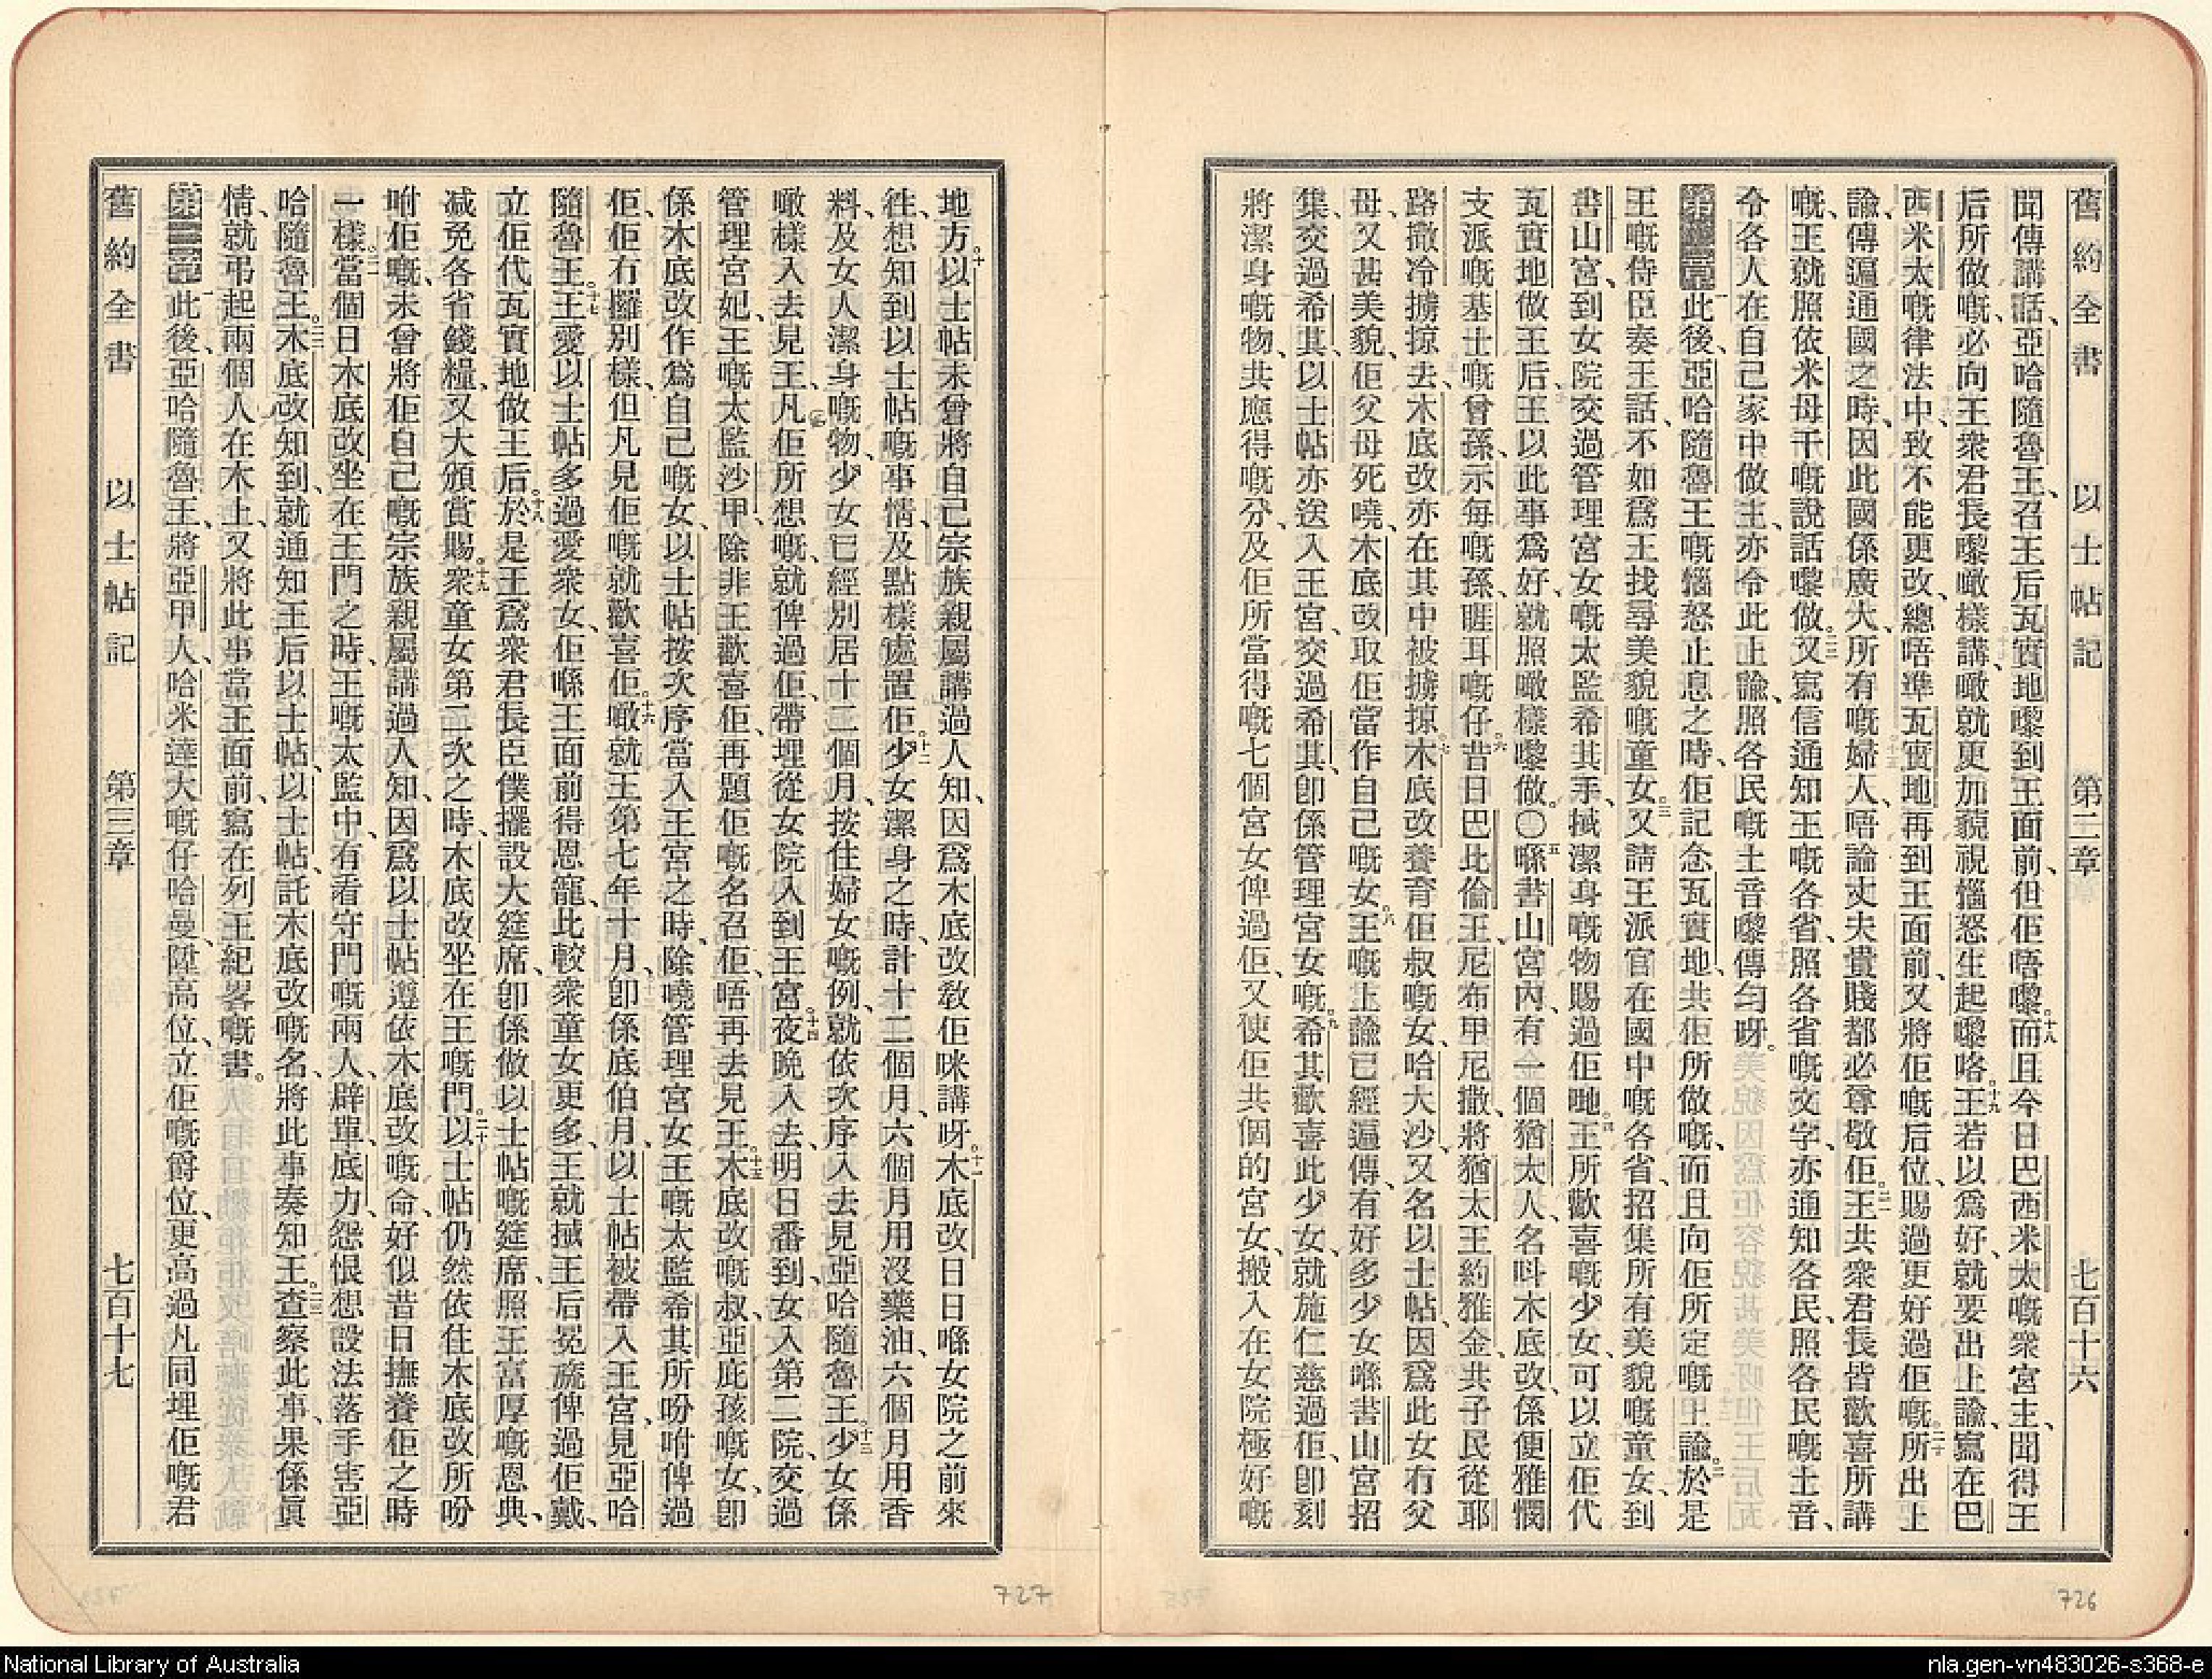 舊約全書 以士帖記 第二章 七百十六
聞傳講話、亞哈隨魯王、召王后瓦實地嚟到王面前、但佢唔嚟。十八而且今日巴西米太嘅衆宮主、聞得王
后所做嘅、必向王衆君長嚟噉樣講、噉就更加藐視惱怒生起嚟咯。十九王若以爲好、就要出上諭、寫在巴
西米太嘅律法中、致不能更改、總唔準瓦實地再到王面前、又將佢嘅后位、賜過更好過佢嘅。二十所出上
諭、傳遍通國之時、因此國係廣大、所有嘅婦人、唔論丈夫貴賤都必尊敬佢。二一王共衆君長皆歡喜所講
嘅、王就照依米母干嘅說話嚟做。二二又寫信通知王嘅各省、照各省嘅文字、亦通知各民、照各民嘅土音、
令各人在自己家中做主、亦令此上諭、照各民嘅土音嚟傳勻呀。
第二章一此後、亞哈隨魯王嘅惱怒止息之時、佢記念瓦實地、共佢所做嘅、而且向佢所定嘅上諭。二於是
王嘅侍臣奏王話、不如爲王找尋美貌嘅童女。三又請王派官在國中嘅各省、招集所有美貌嘅童女、到
書山宮、到女院交過管理宮女嘅太監希其手、搣潔身嘅物賜過佢哋。四王所歡喜嘅少女、可以立佢代
瓦實地做王后、王以此事爲好、就照噉樣嚟做。〇五喺書山宮內、有一個猶太人、名叫木底改、係便雅憫
支派嘅基士嘅曾孫、示每嘅孫、睚耳嘅仔。六昔日巴比倫王、尼布甲尼撒、將猶太王約雅金、共子民從耶
路撒冷擄掠去、木底改亦在其中被擄掠。七木底改養育佢叔嘅女、哈大沙、又名以士帖、因爲此女冇父
母、又甚美貌、佢父母死曉、木底改取佢當作自己嘅女。八王嘅上諭已經遍傳、有好多少女喺書山宮招
集、交過希其、以士帖亦送入王宮、交過希其、卽係管理宮女嘅。九希其歡喜此少女、就施仁慈過佢、卽刻
將潔身嘅物、共應得嘅分、及佢所當得嘅七個宮女俾過佢、又使佢共個的宮女、搬入在女院極好嘅
地方。十以士帖未曾將自己宗族親屬講過人知、因爲木底改敎佢咪講呀。十一木底改日日喺女院之前來
往、想知到以士帖嘅事情、及點樣處置佢。十二少女潔身之時、計十二個月、六個月用沒藥油、六個月用香
料、及女人潔身嘅物、少女已經別居十二個月、按住婦女嘅例、就依次序入去見亞哈隨魯王。十三少女係
噉樣入去見王、凡佢所想嘅、就俾過佢、帶埋從女院入到王宮。十四夜晚入去、明日番到、女入第二院、交過
管理宮妃、王嘅太監沙甲、除非王歡喜佢、再題佢嘅名召佢、唔再去見王。十五木底改嘅叔、亞庇孩嘅女、卽
係木底改作爲自己嘅女、以士帖按次序當入王宮之時、除曉管理宮女王嘅太監希其所吩咐俾過
佢、佢冇攞別樣、但凡見佢嘅就歡喜佢。十六噉就王第七年十月、卽係底伯月、以士帖被帶入王宮、見亞哈
隨魯王。十七王愛以士帖多過愛衆女、佢喺王面前得恩寵、比較衆童女更多、王就搣王后冕旒俾過佢戴、
立佢代瓦實地做王后。十八於是王爲衆君長臣僕擺設大筵席、卽係做以士帖嘅筵席、照王富厚嘅恩典、
减免各省錢糧、又大頒賞賜。十九衆童女第二次之時、木底改坐在王嘅門。二十以士帖仍然依住木底改所吩
咐佢嘅、未曾將佢自己嘅宗族親屬講過人知、因爲以士帖遵依木底改嘅命、好似昔日撫養佢之時
一樣。二一當個日木底改坐在王門之時、王嘅太監中、有看守門嘅兩人、辟單、底力、怨恨想設法落手害亞
哈隨魯王。二二木底改知到、就通知王后以士帖、以士帖、託木底改嘅名、將此事奏知王。二三查察此事、果係眞
情、就弔起兩個人在木上、又將此事當王面前、寫在列王紀畧嘅書。
第三章一此後、亞哈隨魯王、將亞甲人、哈米達大嘅仔哈曼、陞高位、立佢嘅爵位、更高過凡同埋佢嘅君
舊約全書 以士帖記 第三章 七百十七
727
726
National Library of Australia
nla.gen-vn483026-s368-e